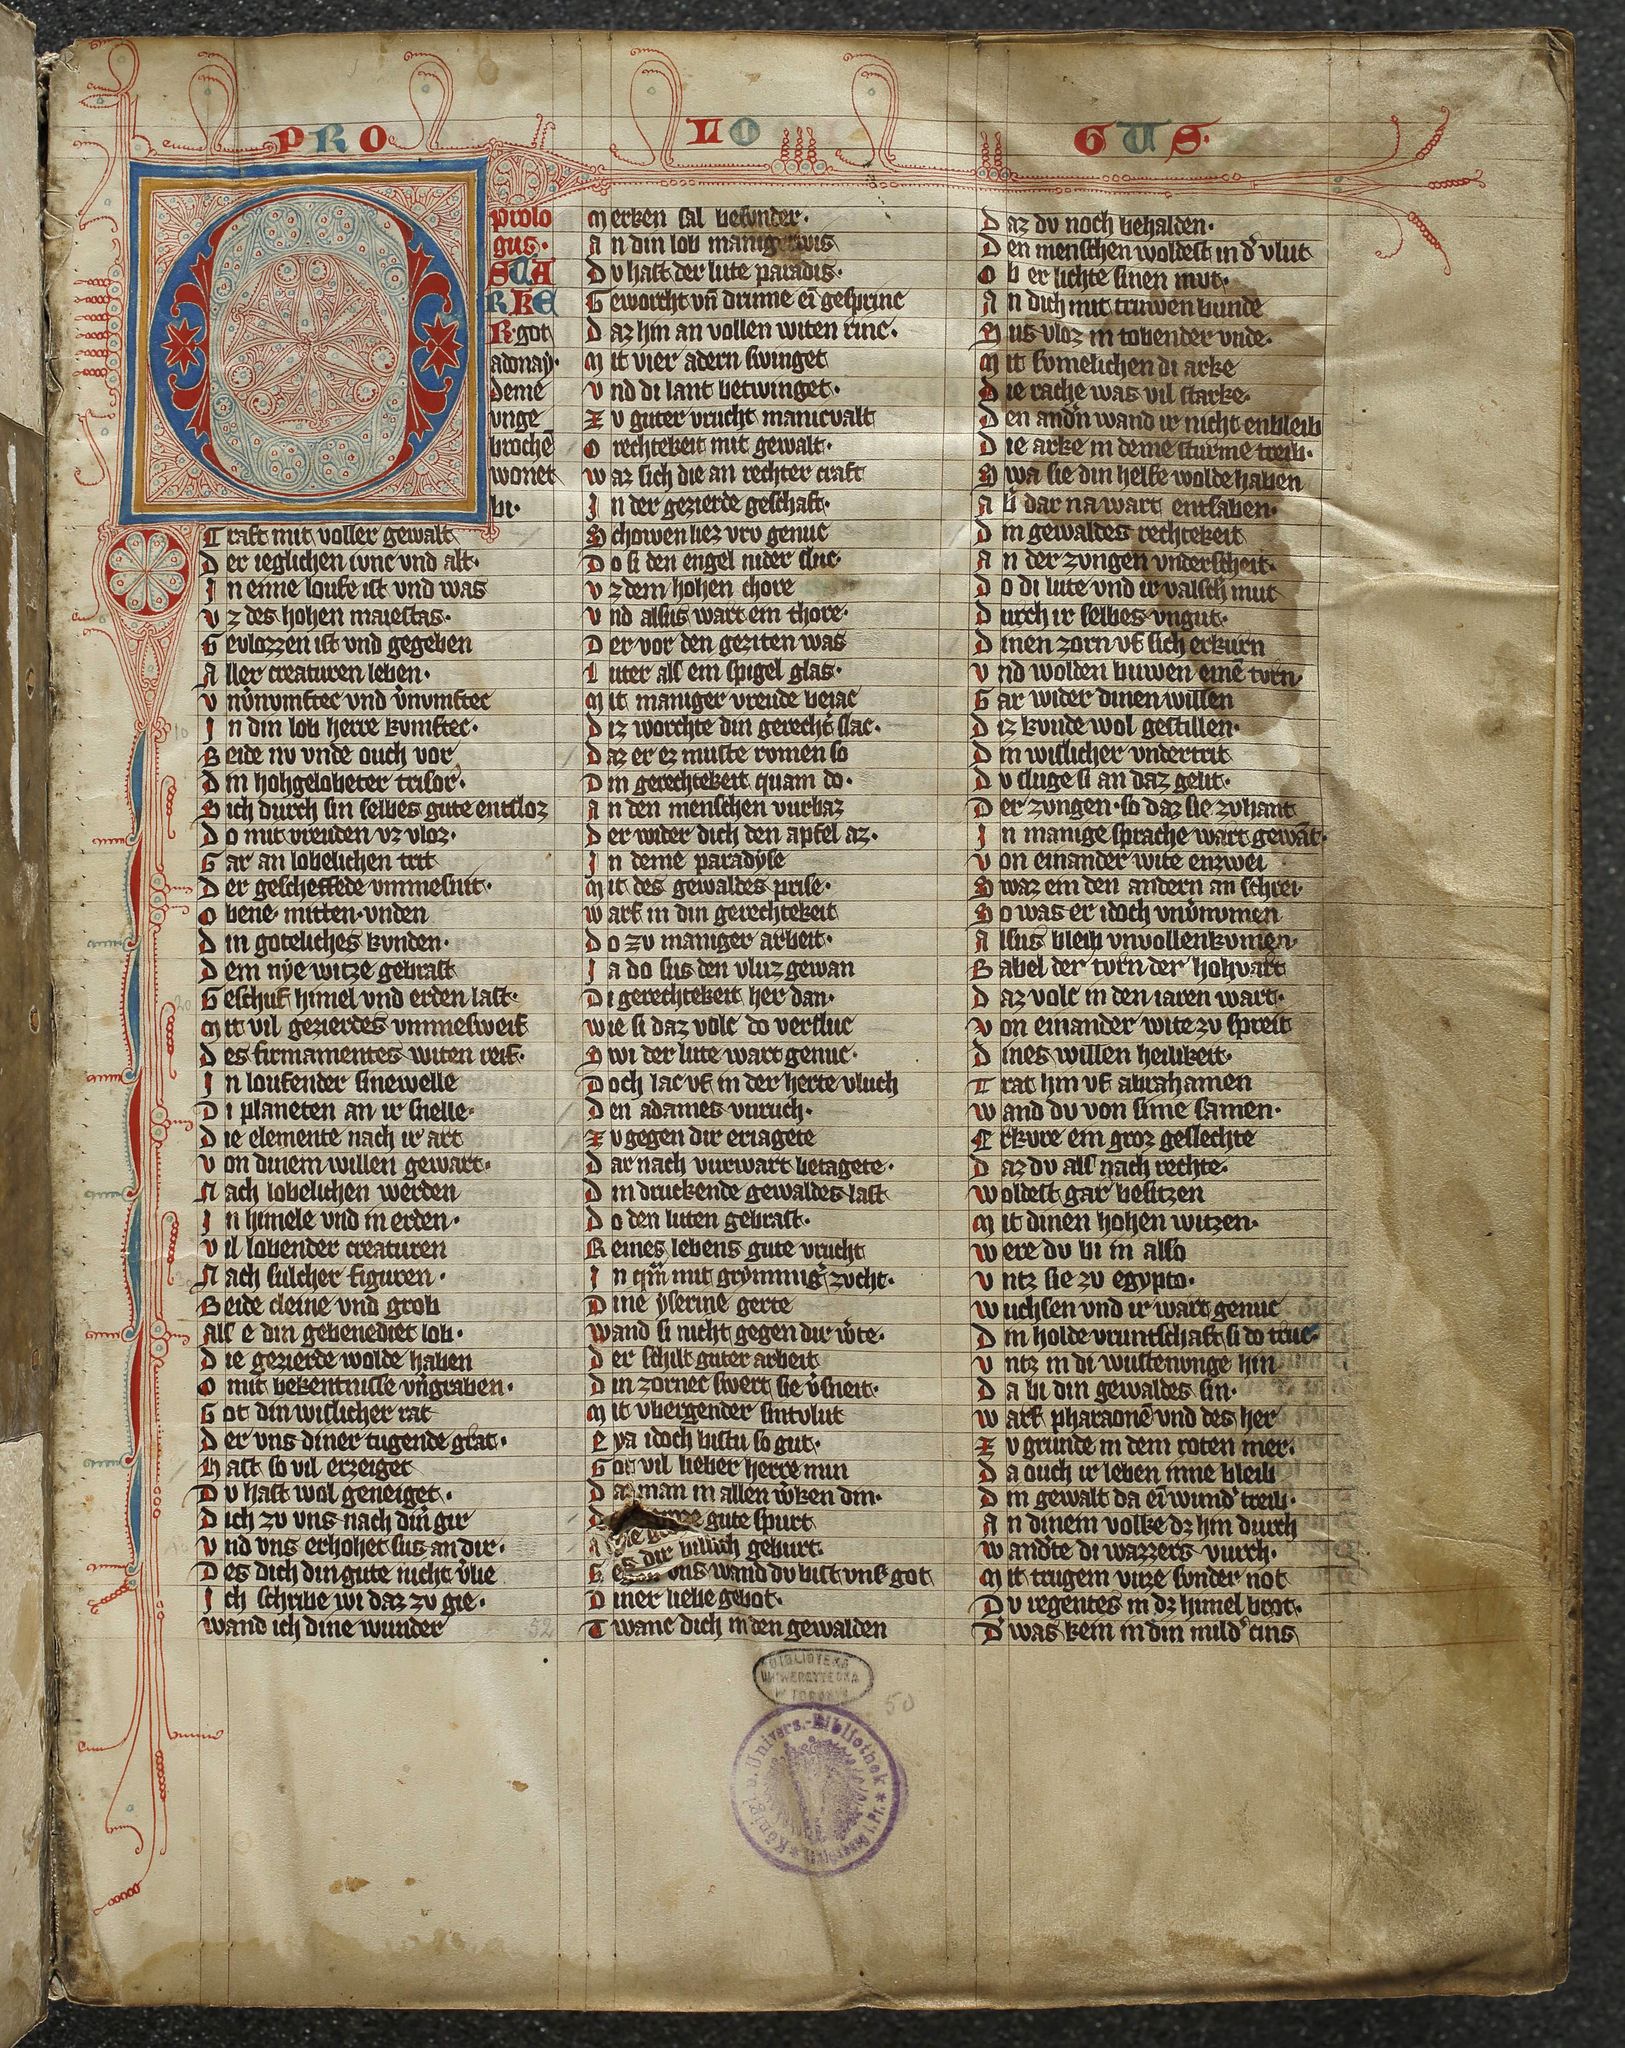 PRO LO GUS.
prolo
gus.
O SCA
RKE
R. got
adonay.
deme
vnge
broche͞
wonet
bi.
Craft mit voller gewalt
Der ieglichen iunc vnd alt.
In enne loufe ist vnd was
Vz des hohen maiestas.
Gevlozzen ist vnd gegeben
Aller creaturen leben.
In din lob herre kvmftec.
Beide nv vnde ouch vor
Din hohgelobeter trisor.
Sich durch sin selbes gute entsloz
Do mit vreuden vz vloz.
Gar an lobelichen trit
Der gescheffede vmmesnit.
Obene. mitten. vnden
Din goteliches kvnden.
Dem nye witze gebrast
Geschuf himel vnd erden last.
Mit vil gezierdes vmmesweif
Des firmamentes witen reif.
In loufender sinewelle
Di planeten an ir snelle.
Die elemente nach ir art
Von dinem willen gewart.
Nach lobelichen werden
In himele vnd in erden.
Vil lobender creaturen
Nach sulcher figuren.
Beide cleine vnd grob
Als e din gebenediet lob.
Die gezierde wolde haben
O mit bekentnisse vn̄graben.
Got din wislicher rat
Der vns diner tugende grat.
Hast so vil erzeiget
Dv hast wol geneiget.
Dich zv vns nach din̄ gir
Vnd vns erhohet sus an dir.
Des dich din gute nicht v̓lie
Ich schribe wi daz zv gie.
Wand ich dine wunder
52
Merken sal besunder.
An din lob maniger wis
Dv hast der lute paradis.
Geworcht vn̄ drinne ei͞ gesprinc
Daz hin an vollen witen rinc.
Mit vier adern swinget
Vnd di lant betwinget.
Zv guter vrucht manicvalt
O rechtekeit mit gewalt.
Waz sich die an rechter craft
In der gezierde geschaft.
Schowen liez vrv genuc
Do si den engel nider sluc.
Vz dem hohen chore
Vnd alsus wart ein thore.
Der vor den geziten was
Luter als ein spigel glas.
Mit maniger vreude beiac
Diz worchte din gerecht̓ slac.
Daz er ez muste romen so
Din gerechtekeit quam do.
An den menschen vurbaz
Der wider dich den apfel az.
In deme paradyse
Mit des gewaldes prise.
Warf in din gerechtekeit
Do zv maniger arbeit.
Ia do sus den vluz gewan
Di gerechtekeit her dan.
Wie si daz volc do versluc
Swi der lute wart genuc.
Doch lac vf in der herte vluch
Den adames vnruch.
Zv gegen dir eriagete
Dar nach vurwart betagete.
Din druckende gewaldes last
Do den luten gebrast.
Reines lebens gute vrucht
Dine yserine gerte
Wand si nicht gegen dir w̓te.
Der schilt guter arbeit
Din zornec swert sie v̓sneit.
Mit vbergender sintvlut
Eya idoch bistu so gut.
Got vil lieber herre min
Daz man in allen w̓ken din.
gute spurt
dir billich geburt.
Gegen vns wand dv bist vnser got
Diner liebe gebot.
Twanc dich in den gewalden
Daz dv noch behalden.
Den menschen woldest in d̓ vlut
Ob er lichte sinen mut.
An dich mit truwen bunde
Sus vloz in tobender vnde.
Mit svmelichen di arke
Die rache was vil starke.
Den and̓n wand ir nicht enbleib
Die arke in deme sturme treib.
Swa sie din helfe wolde haben
Ab dar na wart entsaben.
Din gewaldes rechtekeit
An der zvngen vnderscheit.
Do di lute vnd ir valsch mut
Durch ir selbes vngut.
Dinen zorn vf sich erkurn
Vnd wolden buwen eine͞ torn.
Gar wider dinen willen
Diz kvnde wol gestillen.
Din wislicher vndertrit
Dv sluge si an daz gelit.
Der zvngen. so daz sie zvhant
In manige sprache wart gewāt.
Von einander wite enzwei
Swaz ein den andern an schrei.
So was er idoch vnv̓nvmen
Alsus bleib vnvollenkvmen.
Babel der torn der hohvart
Daz volc in den iaren wart.
Von einander wite zv spreit
Dines willen heilikeit.
Trat hin vf abrahamen
Wand dv von sime samen.
Erkvre ein groz geslechte
Daz dv als nach rechte.
Woldest gar besitzen
Mit dinen hohen witzen.
Were dv bi in also
Vntz sie zv egypto.
Wuchsen vnd ir wart genuc
Din holde vruntschaft si do truc.
Vntz in di wustenvnge hin
Da bi din gewaldes sin.
Warf pharaone͞ vnd des her
Zv grunde in dem roten mer.
Da ouch ir leben inne bleib
Din gewalt da ei͞ wund̓ treib.
An dinem volke dz hin durch
Wandte di wazzers vurch.
Mit trugem vuze svnder not
Dv regentes in dz himel brot.
D̓ was kein in din mild̓ cins
BIBLIOTEKA
UNIWERSYTECKA
W TORUNIU
50
Königl. u. Univers.-Bibliothek